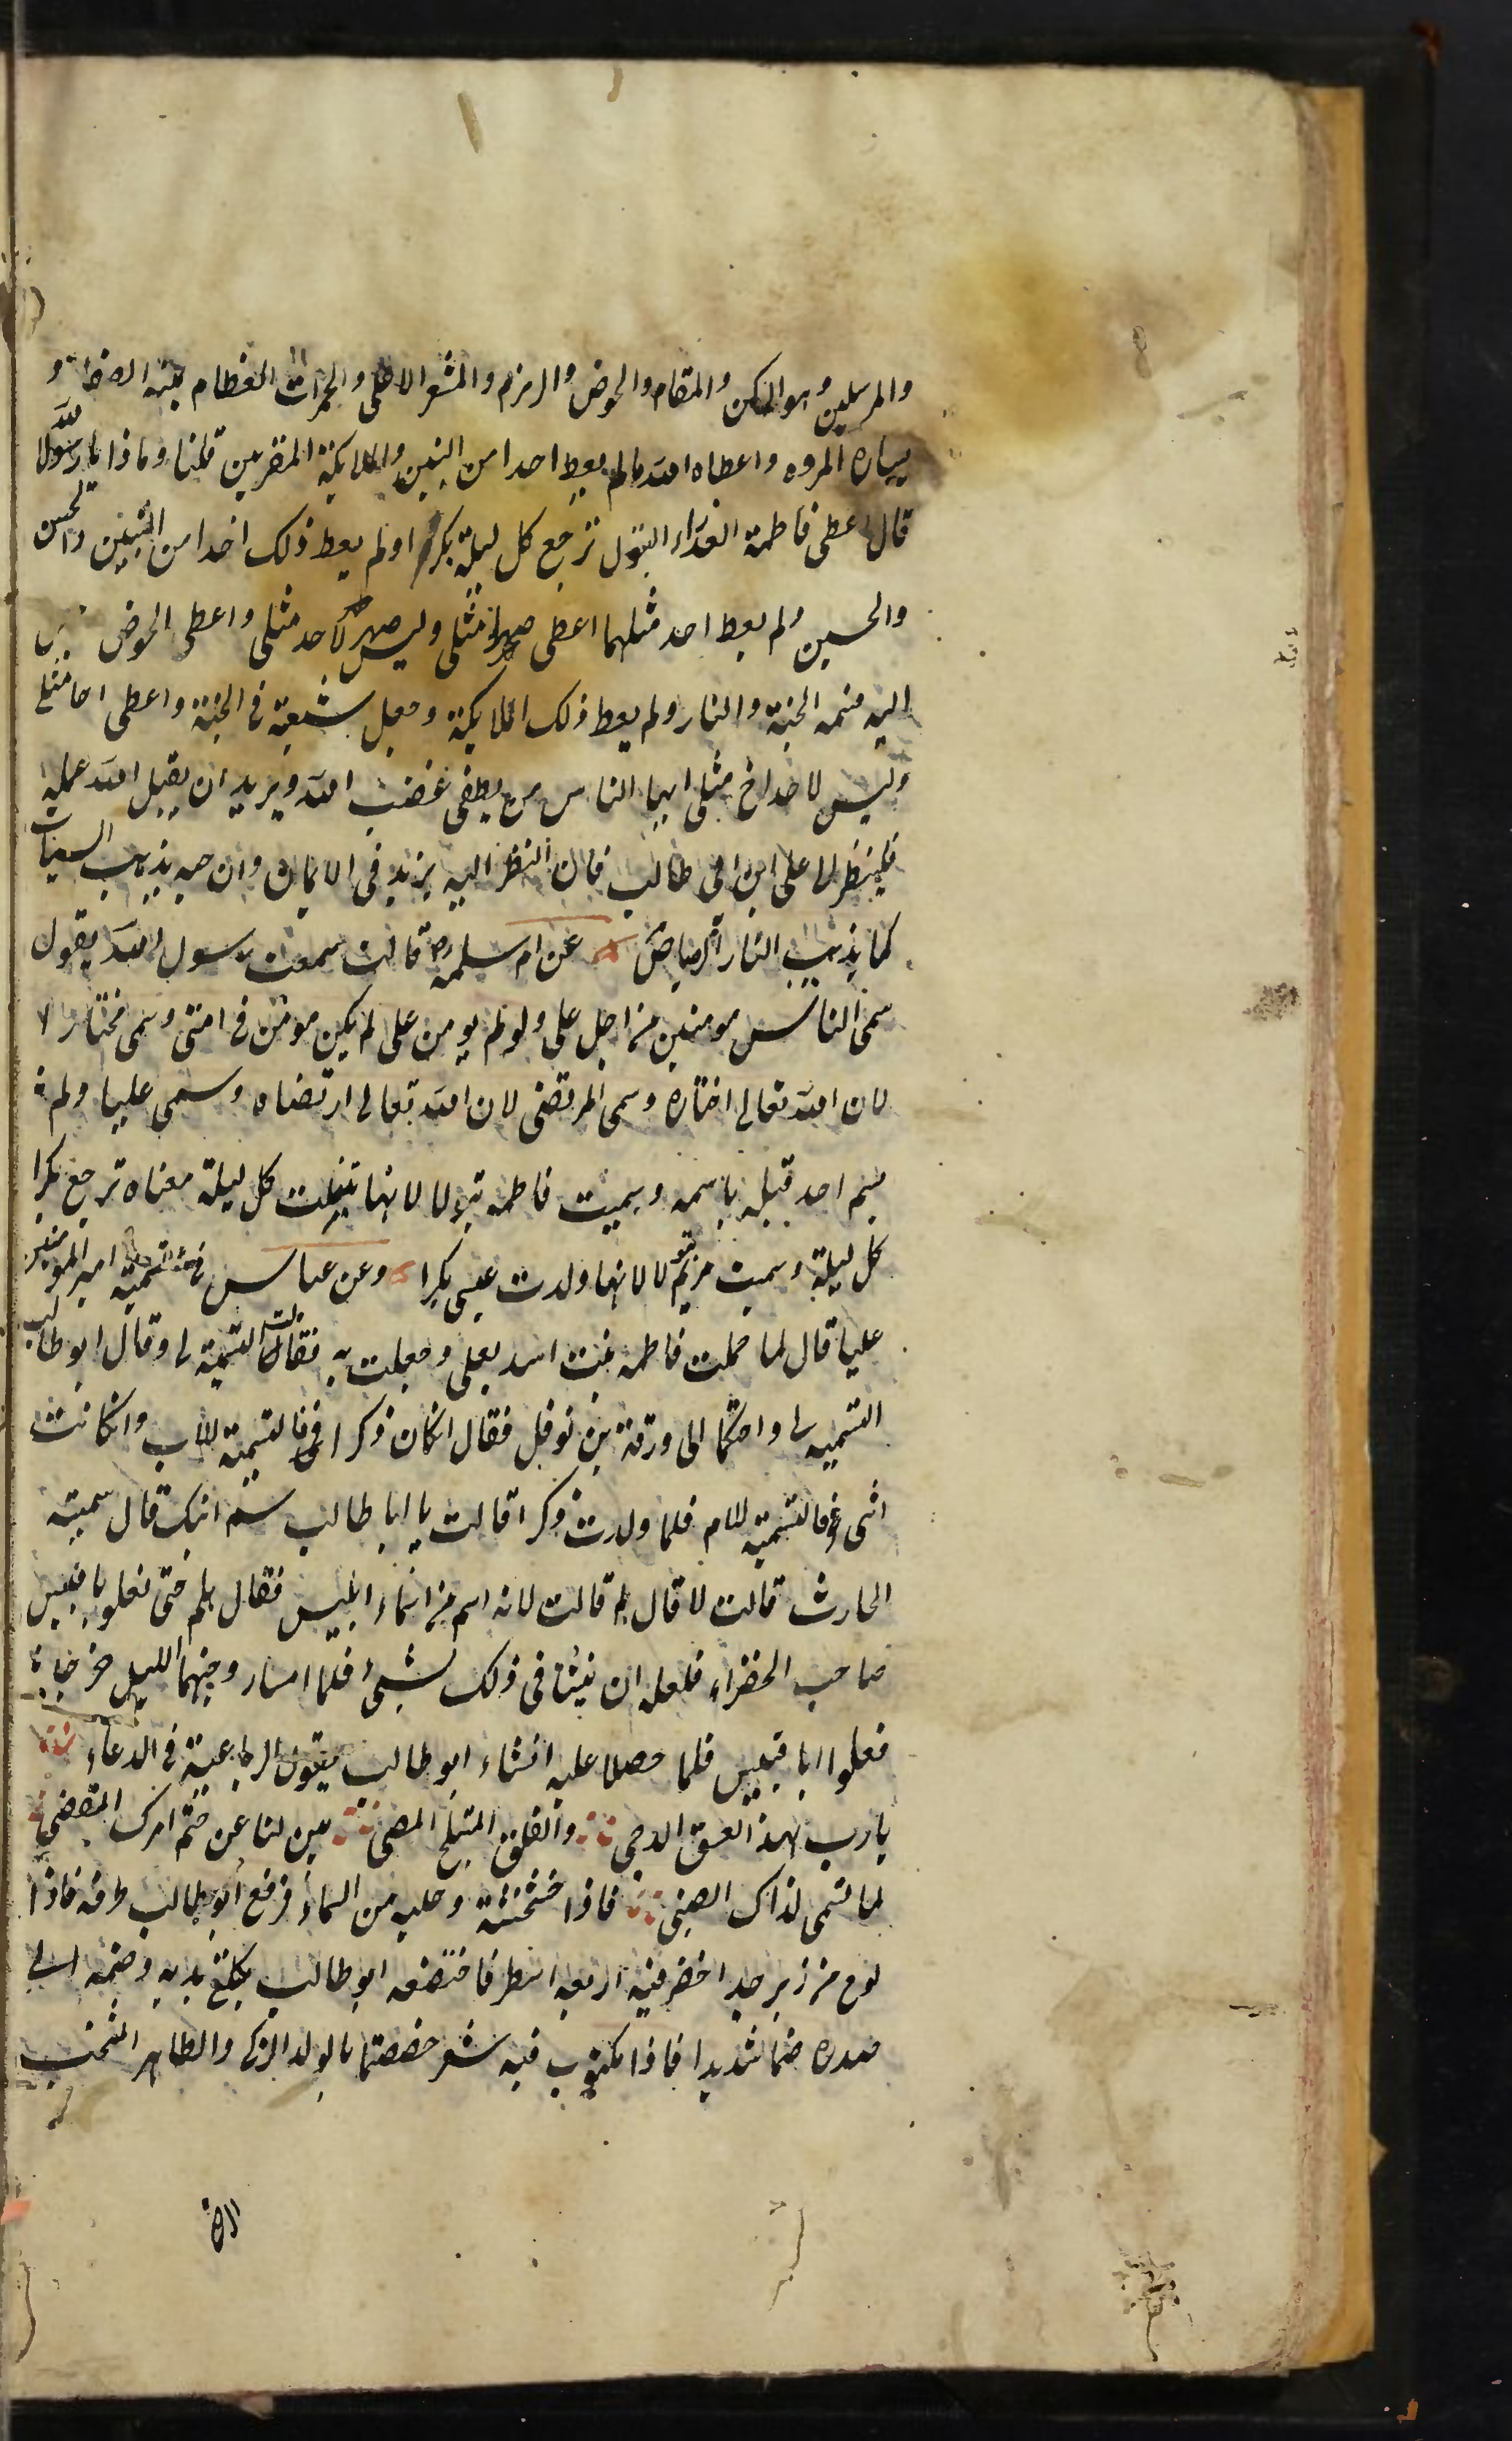 والمرسلين وهو الركن والمقام والحوض والزمزم والمشعر الاعلى والجمرات العظام يمينه الصفا و
يساره المروه واعطاه الله ما لم يعط احدا من النبيين والملايكة المقربين قلنا وما ذا يا رسول الله
قال اعطى فاطمة العذراء البتول ترجع كل ليلة بكرا ولم يعط ذلك احدا من النبيين والحسن
والحسين ولم يعط احد مثلهما اعطى صهرا مثلى وليس صهر لاحد مثلى واعطى الحوض
اليه قسمه الجنة والنار ولم يعط ذلك الملايكة وجعل شيعة فى الجنة واعطى اخا مثلى
وليس لاحد اخ مثلى ايها الناس من يطفى غضب الله ويريد ان يقبل الله عمله
فلينظر الى على ابن ابى طالب فان النظر اليه يزيد فى الايمان وان حبه يذيب السيئات
كما يذيب النار الرصاص عن ام سلمه رض قالت سمعت رسول الله يقول
سمى الناس مومنين من اجل على ولو لم يومن على لم يكن مومن فى امتى وسمى مختارا
لان الله تعالى اختاره وسمى المرتضى لان الله تعالى ارتضاه وسمى عليا ولم
يسم احد قبله باسمه وسميت فاطمه بتولا لانها تبتلت كل ليلة معناه ترجع بكرا
كل ليلة وسميت مريم بتولا لانها ولدت عيسى بكرا وعن عباس فى تسمية امير المومنين
عليا قال لما حملت فاطمه بنت اسد بعلى وجعلت به فقالت التسمية لى وقال ابو طالب
التسميه لى واحتكما الى ورقة بن نوفل فقال انكان ذكرا فالتسمية للاب وانكانت
انثى فالتسمية للام فلما ولدت ذكرا قالت يا ابا طالب سم ابنك قال سميته
الحارث قالت لا قال لم قالت لانه اسم من اسماء ابليس فقال هلم حتى نعلو ابا قبيس
صاحب الخضراء فلعله ان ينبئنا فى ذلك بشىء فلما امسا وجنهما الليل خرجا
فعلوا ابا قبيس فلما حصلا عليه انشاء ابو طالب يقول الرباعية فى الدعاء
يا رب هذا الغسق الدجى والفلق المبتلج المضى بين لنا عن حتم امرك المقضى
لما تسمى لذاك الصبى فاذا خشخشة وجلبه من السماء فرفع ابو طالب طرفه فاذا
لوح من زبرجد اخضر فيه اربعه اسطر فاحتضنه ابو طالب بكلتى يديه وضمه الى
صدره ضما شديدا فاذا مكتوب فيه شعر خصصتما بالولد الزكى والطاهر المنتخب